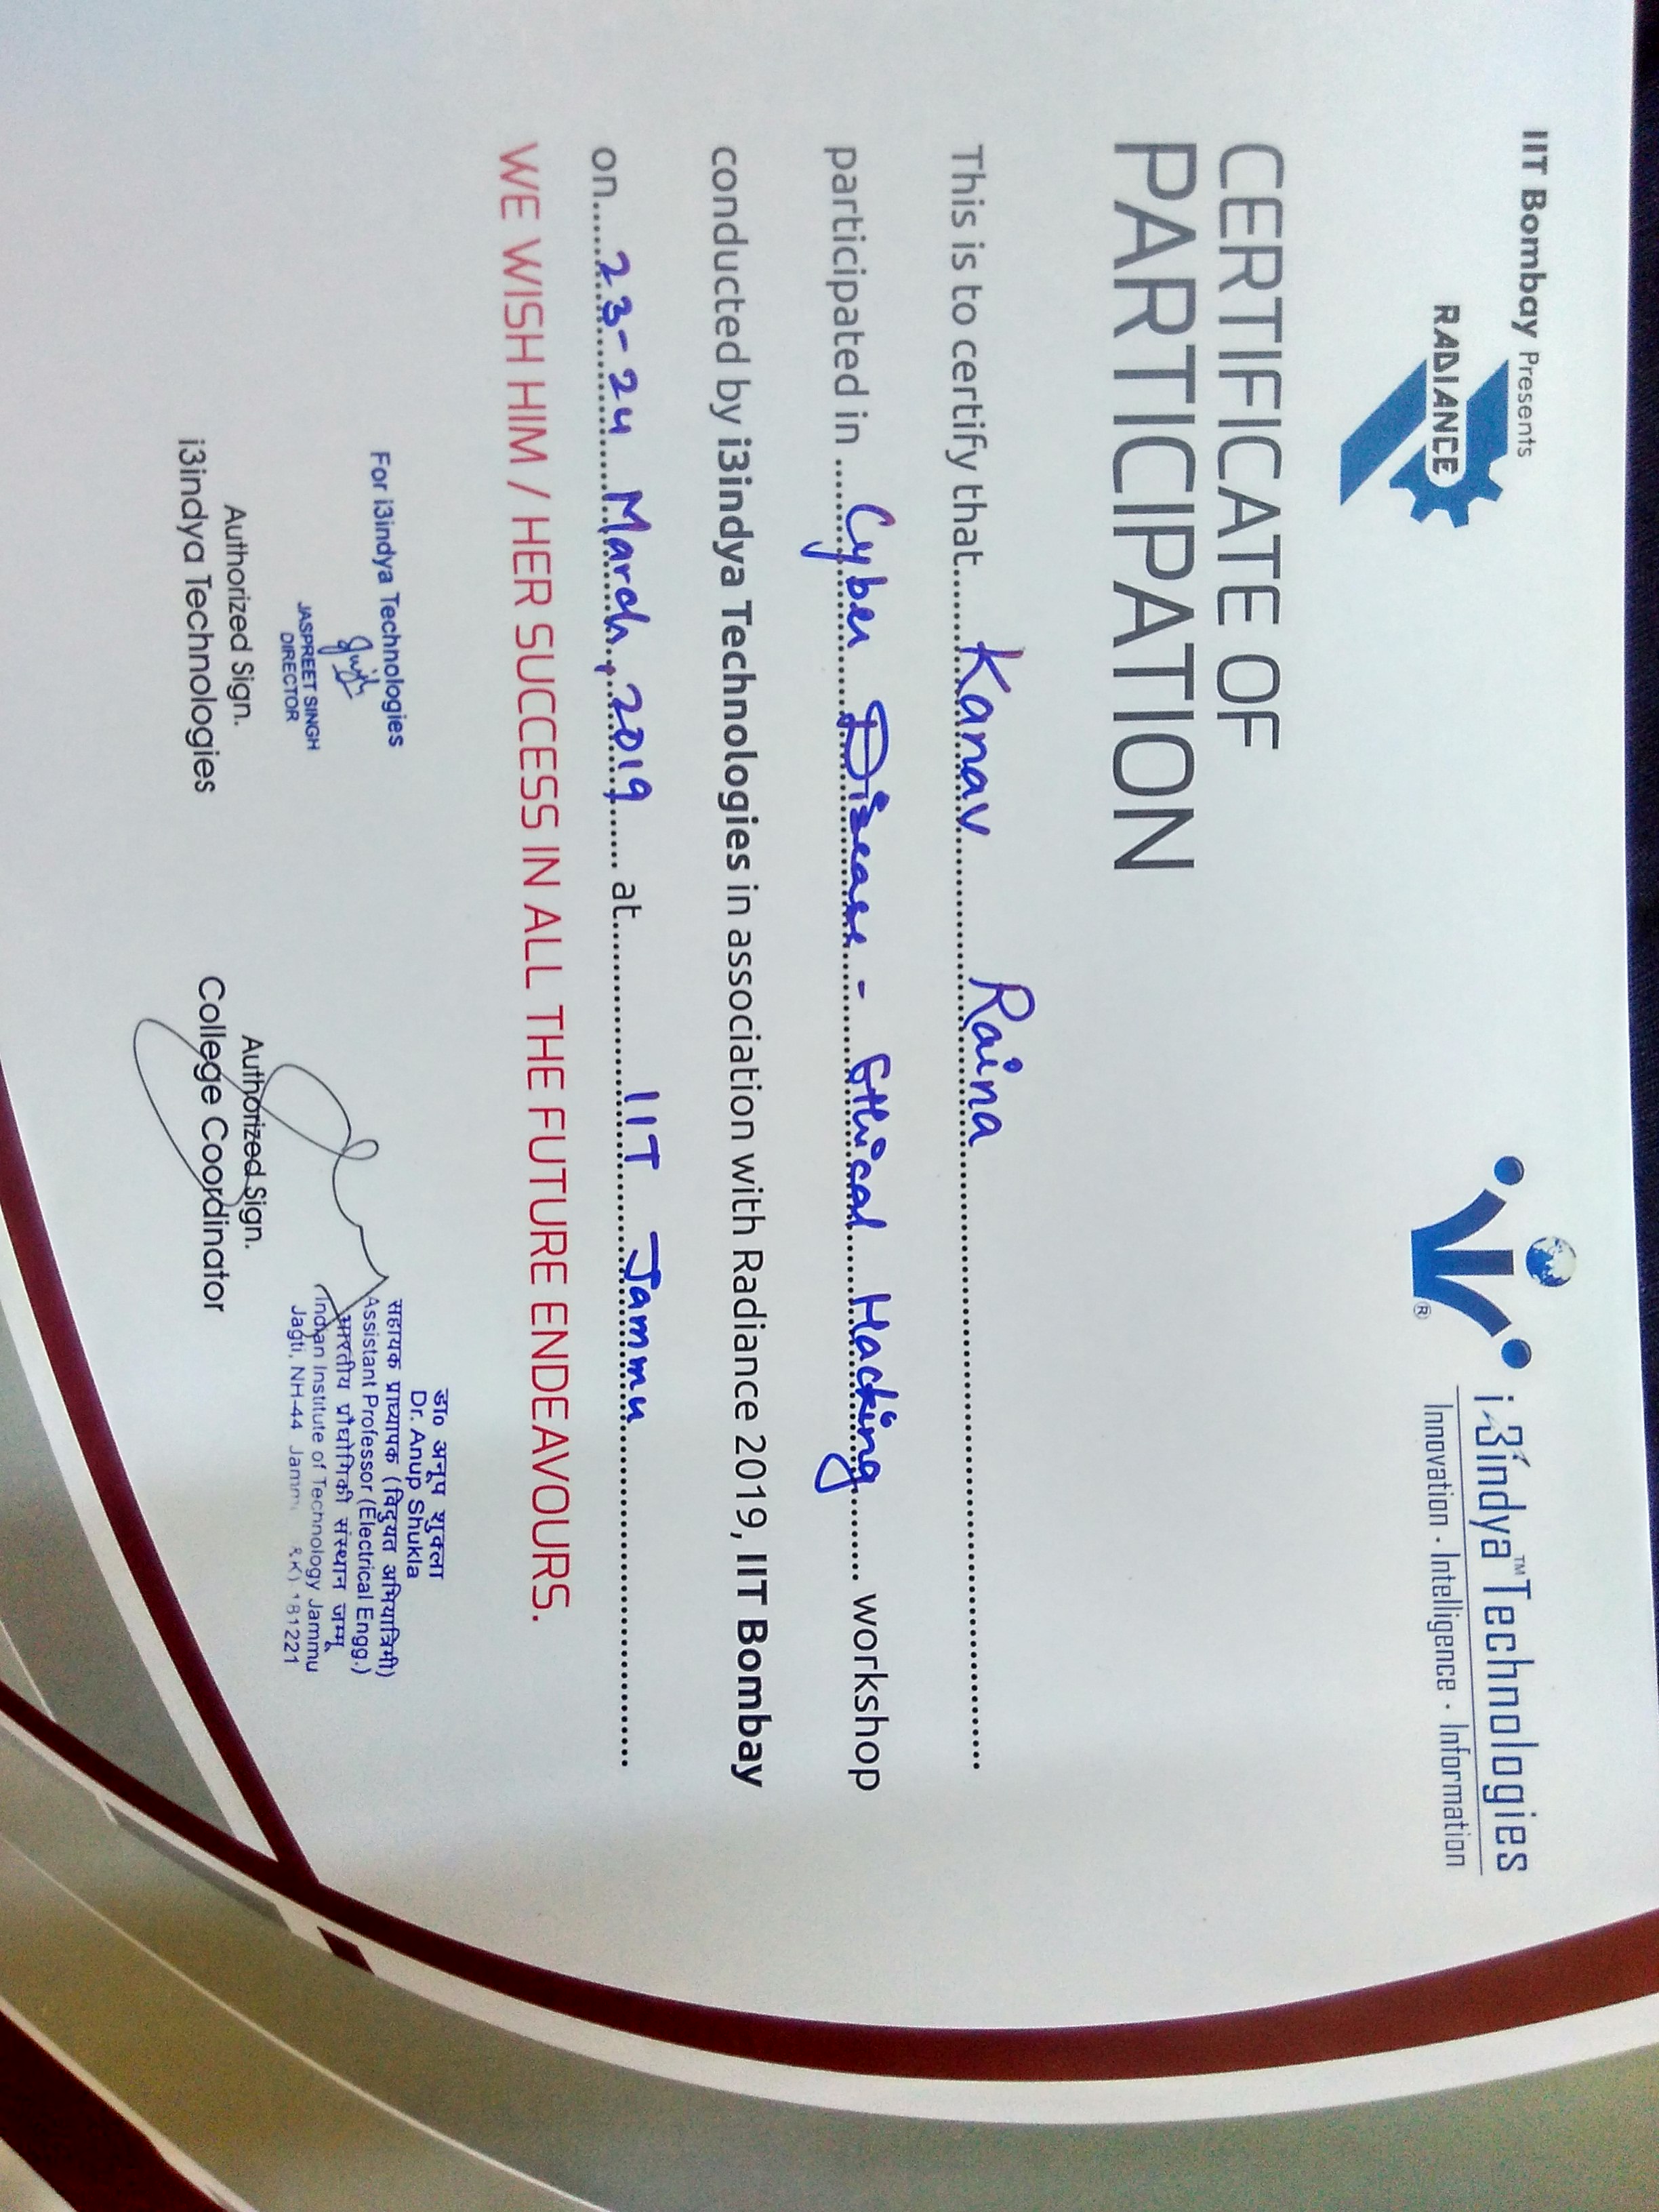 IIT Bombay Presents
RADIANCE
i3indya™Technologies
Innovation · Intelligence · Information
®
CERTIFICATE OF
PARTICIPATION
This is to certify that......Kanav Raina......
participated in ......Cyber Disease - Ethical Hacking...... workshop
conducted by i3indya Technologies in association with Radiance 2019, IIT Bombay
on......23-24 March, 2019...... at......IIT Jammu......
WE WISH HIM / HER SUCCESS IN ALL THE FUTURE ENDEAVOURS.
For i3indya Technologies
JASPREET SINGH
DIRECTOR
Authorized Sign.
i3indya Technologies
डा० अनूप शुक्ला
Dr. Anup Shukla
सहायक प्राध्यापक (विद्युत अभियात्रिमी)
Assistant Professor (Electrical Engg.)
भारतीय प्रौद्योगिकी संस्थान जम्मू
Indian Institute of Technology Jammu
Jagti, NH-44 &K) 181221
Authorized Sign.
College Coordinator